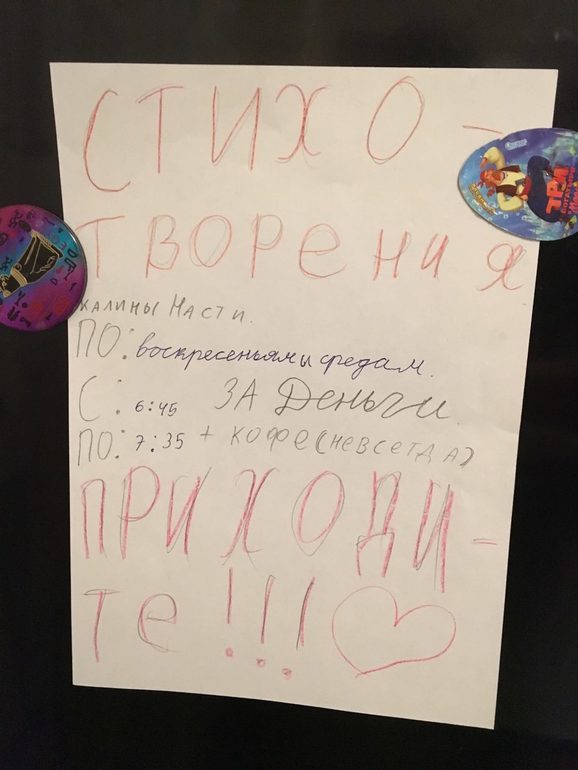 СТИХО-
ТВОРЕНИЯ
КАЛИНЫ НАСТИ.
ПО: воскресеньям и средам.
С: 6:45 ЗА Деньги
ПО: 7:35 + КОФЕ(НЕВСЕГДА)
ПРИХОДИ-
Те!!!
ТРИ